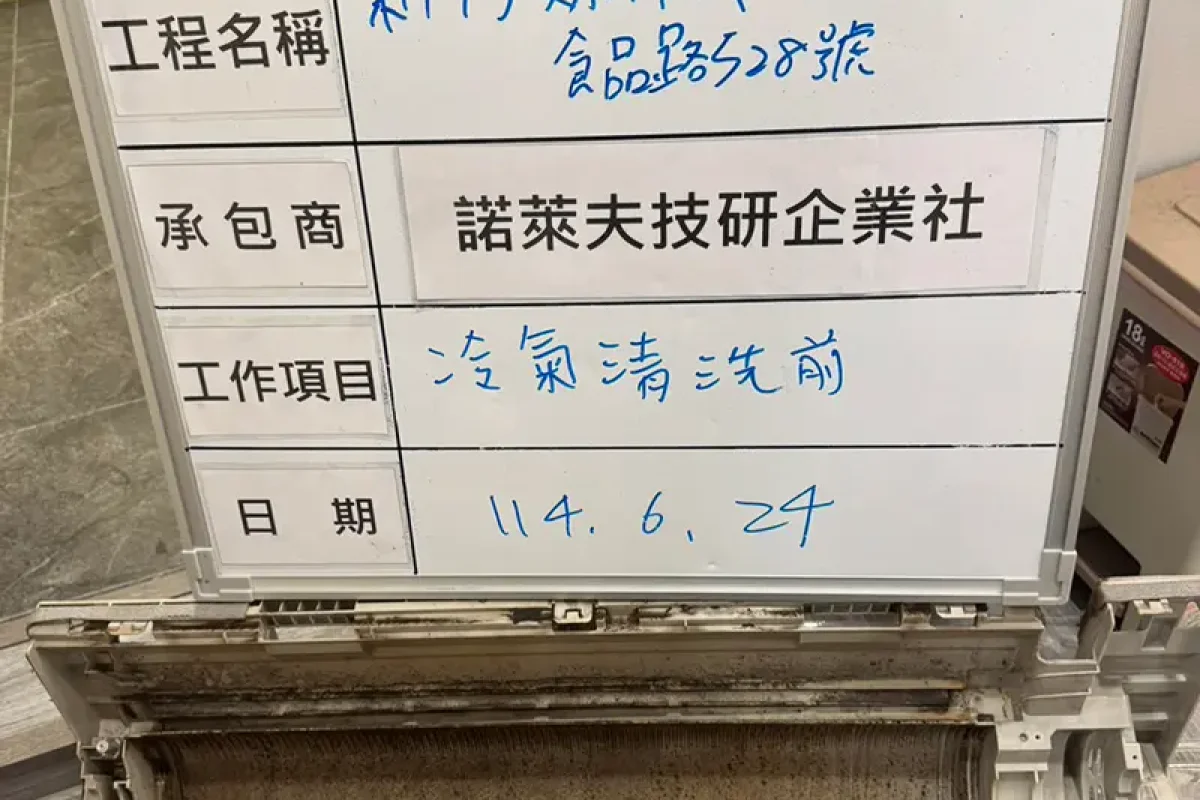 工程名稱
食品路528號
承包商
諾萊夫技研企業社
工作項目
冷氣清洗前
日期
114.6.24
18L